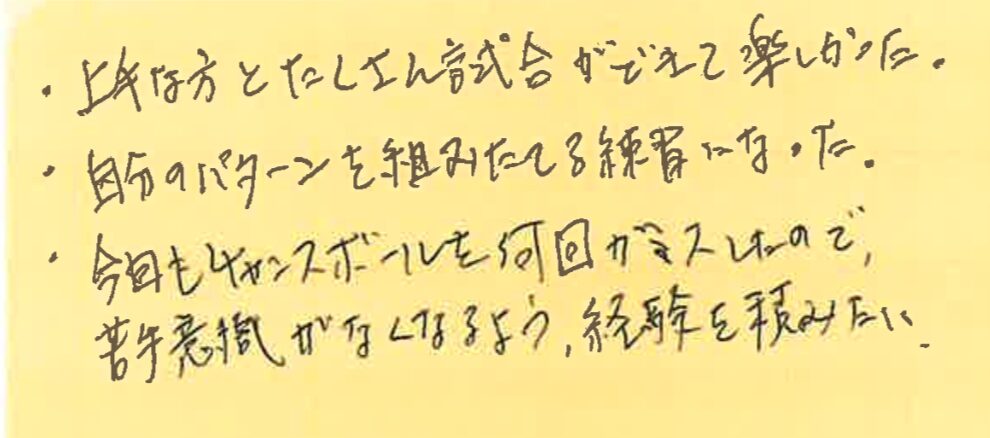 ・上手な方とたくさん試合ができて楽しかった。
・自分のパターンを組みたてる練習になった。
・今回もチャンスボールを何回かミスしたので、
苦手意識がなくなるよう、経験を積みたい.